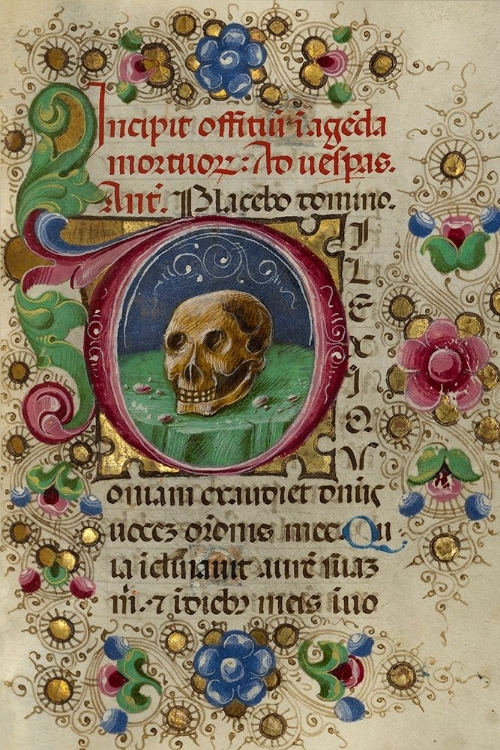 Incipit offitiū ī agēda
mortuoꝝ: Ad uespas.
Ant̄. Placebo domino.
D
I
L
E
X
I
Q
V
oniam exaudiet dn̄s
uocez or̄onis mee. Qu
ia īclinauit aurē suaz
m̄. ⁊ ī diebꝰ meis īuo